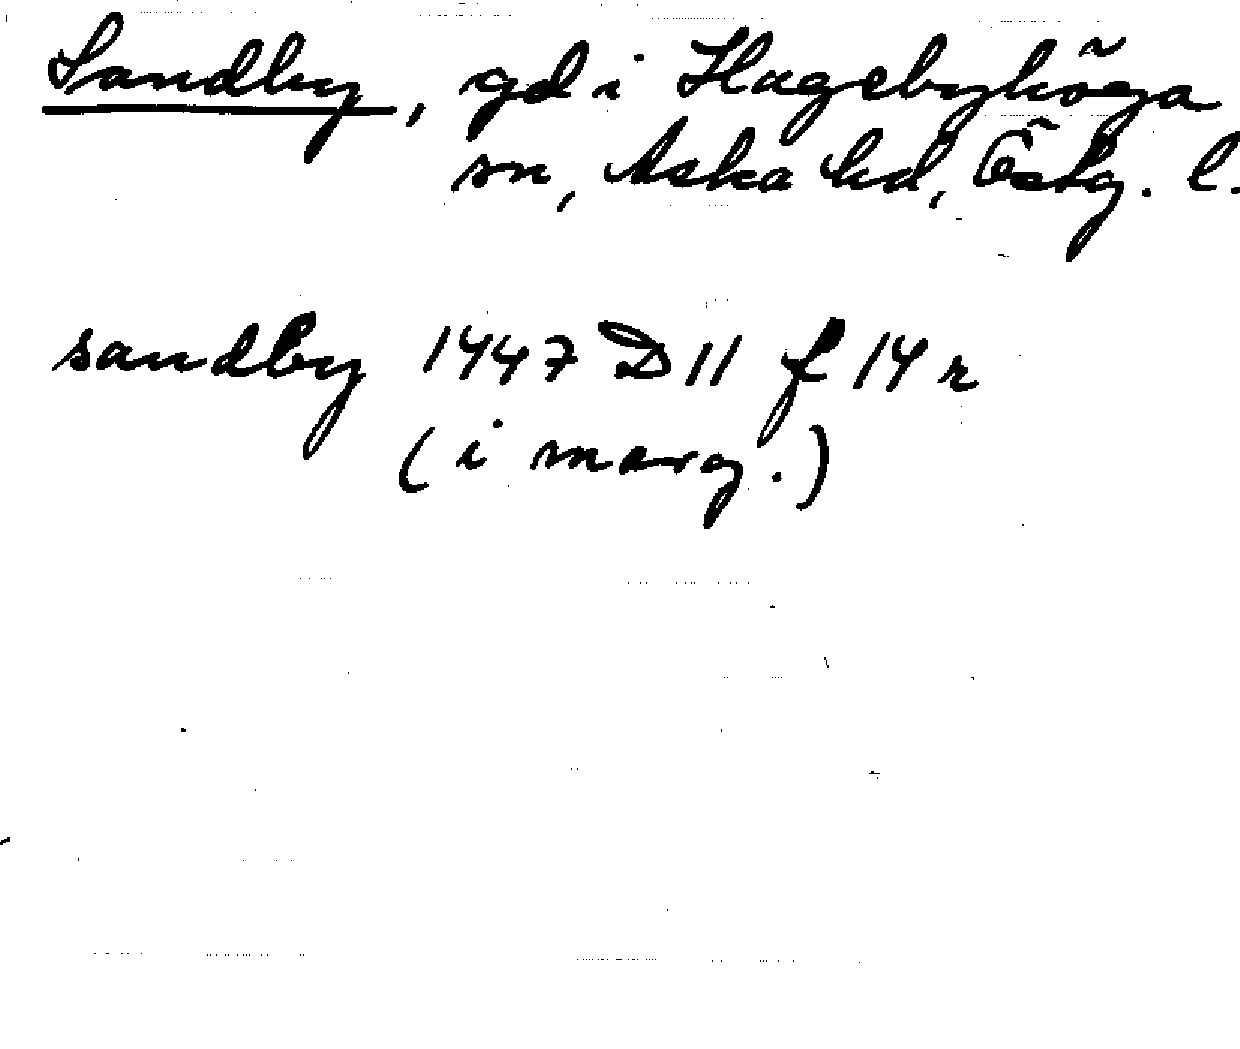 Sandby, gd i Hagebyhöga
sn, Aska hd, Östg. l.
sandby 1447 D 11 f 14 r
(i marg.)